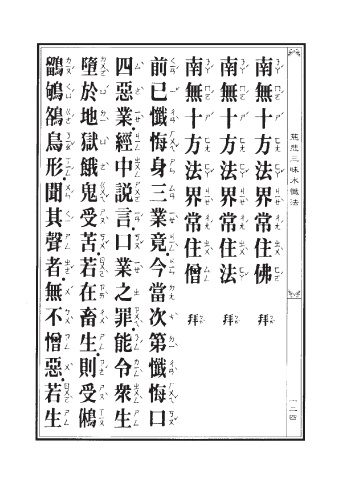 慈悲三昧水懺法
一二四
南無十方法界常住佛　拜
南無十方法界常住法　拜
南無十方法界常住僧　拜
前已懺悔身三業竟今當次第懺悔口
四惡業經中說言口業之罪能令眾生
墮於地獄餓鬼受苦若在畜生則受鵂
鶹鴝鵒鳥形聞其聲者無不憎惡若生